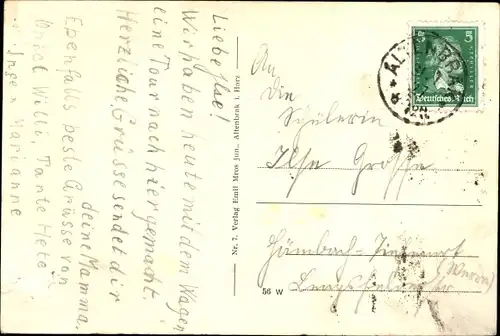 Liebe Ilse!
Wir haben heute mit dem Wagen
eine Tour nach hier gemacht.
Herzliche Grüsse sendet dir
deine Mamma.
Ebenfalls beste Grüsse von
Onkel Willi, Tante Hete
Inge, Marianne
Nr. 7. Verlag Emil Mros jun., Altenbrak i. Harz
An
die
Schülerin
Ilse Grosse
56 W
5 5
Deutsches Reich
ALTENBRAK